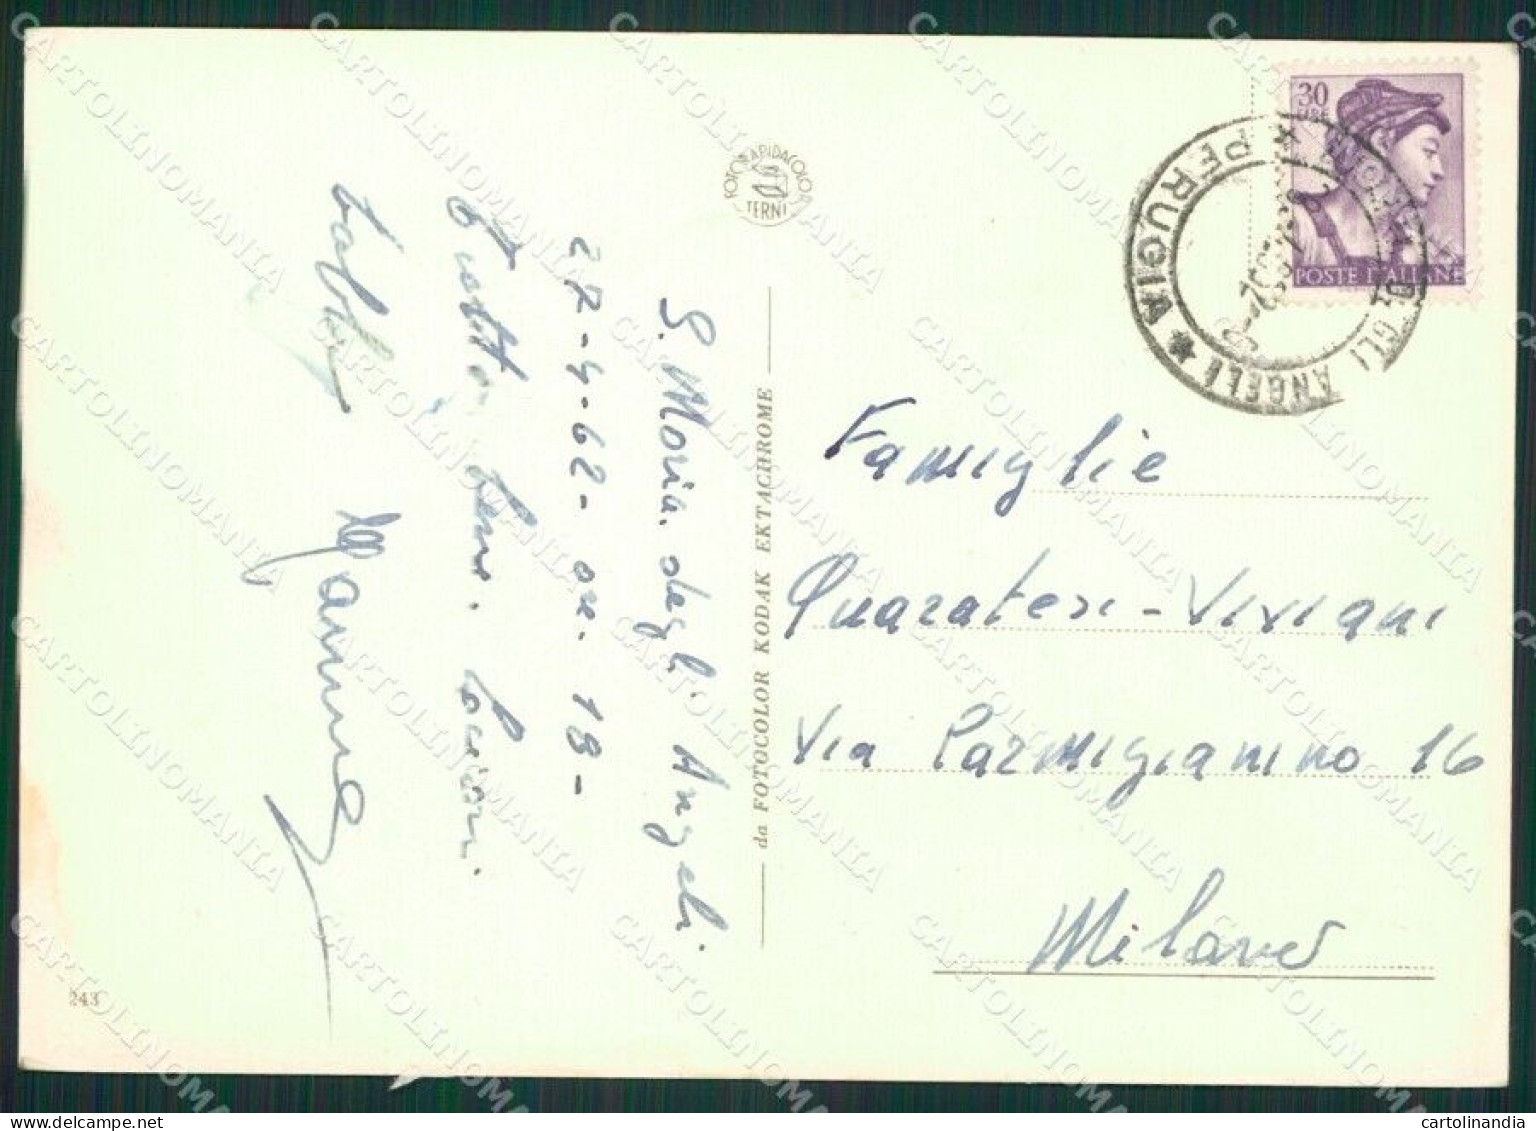 S. Maria degli Angeli.
27-4-62- ore. 18-
Tutto bene. bacioni.
FOTORAPIDACOLOR
TERNI
da FOTOCOLOR KODAK EKTACHROME
30
LIRE
POSTE ITALIANE
ANGELI * PERUGIA *
Famiglie
Quaratesi - Viviani
Via Parmigianino 16
Milano
243
CARTOLINOMANIA
cartolinandia